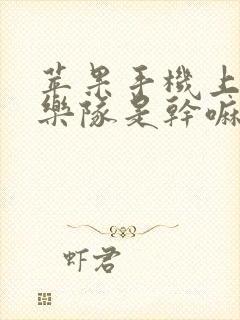 苹果手機上
樂隊是幹嘛
虾君